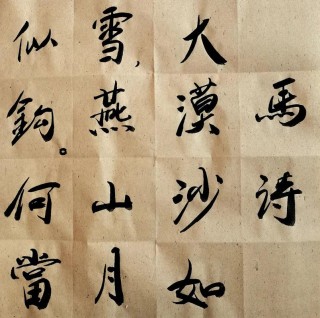 馬詩
大漠沙如
雪,燕山月
似鈎。何當